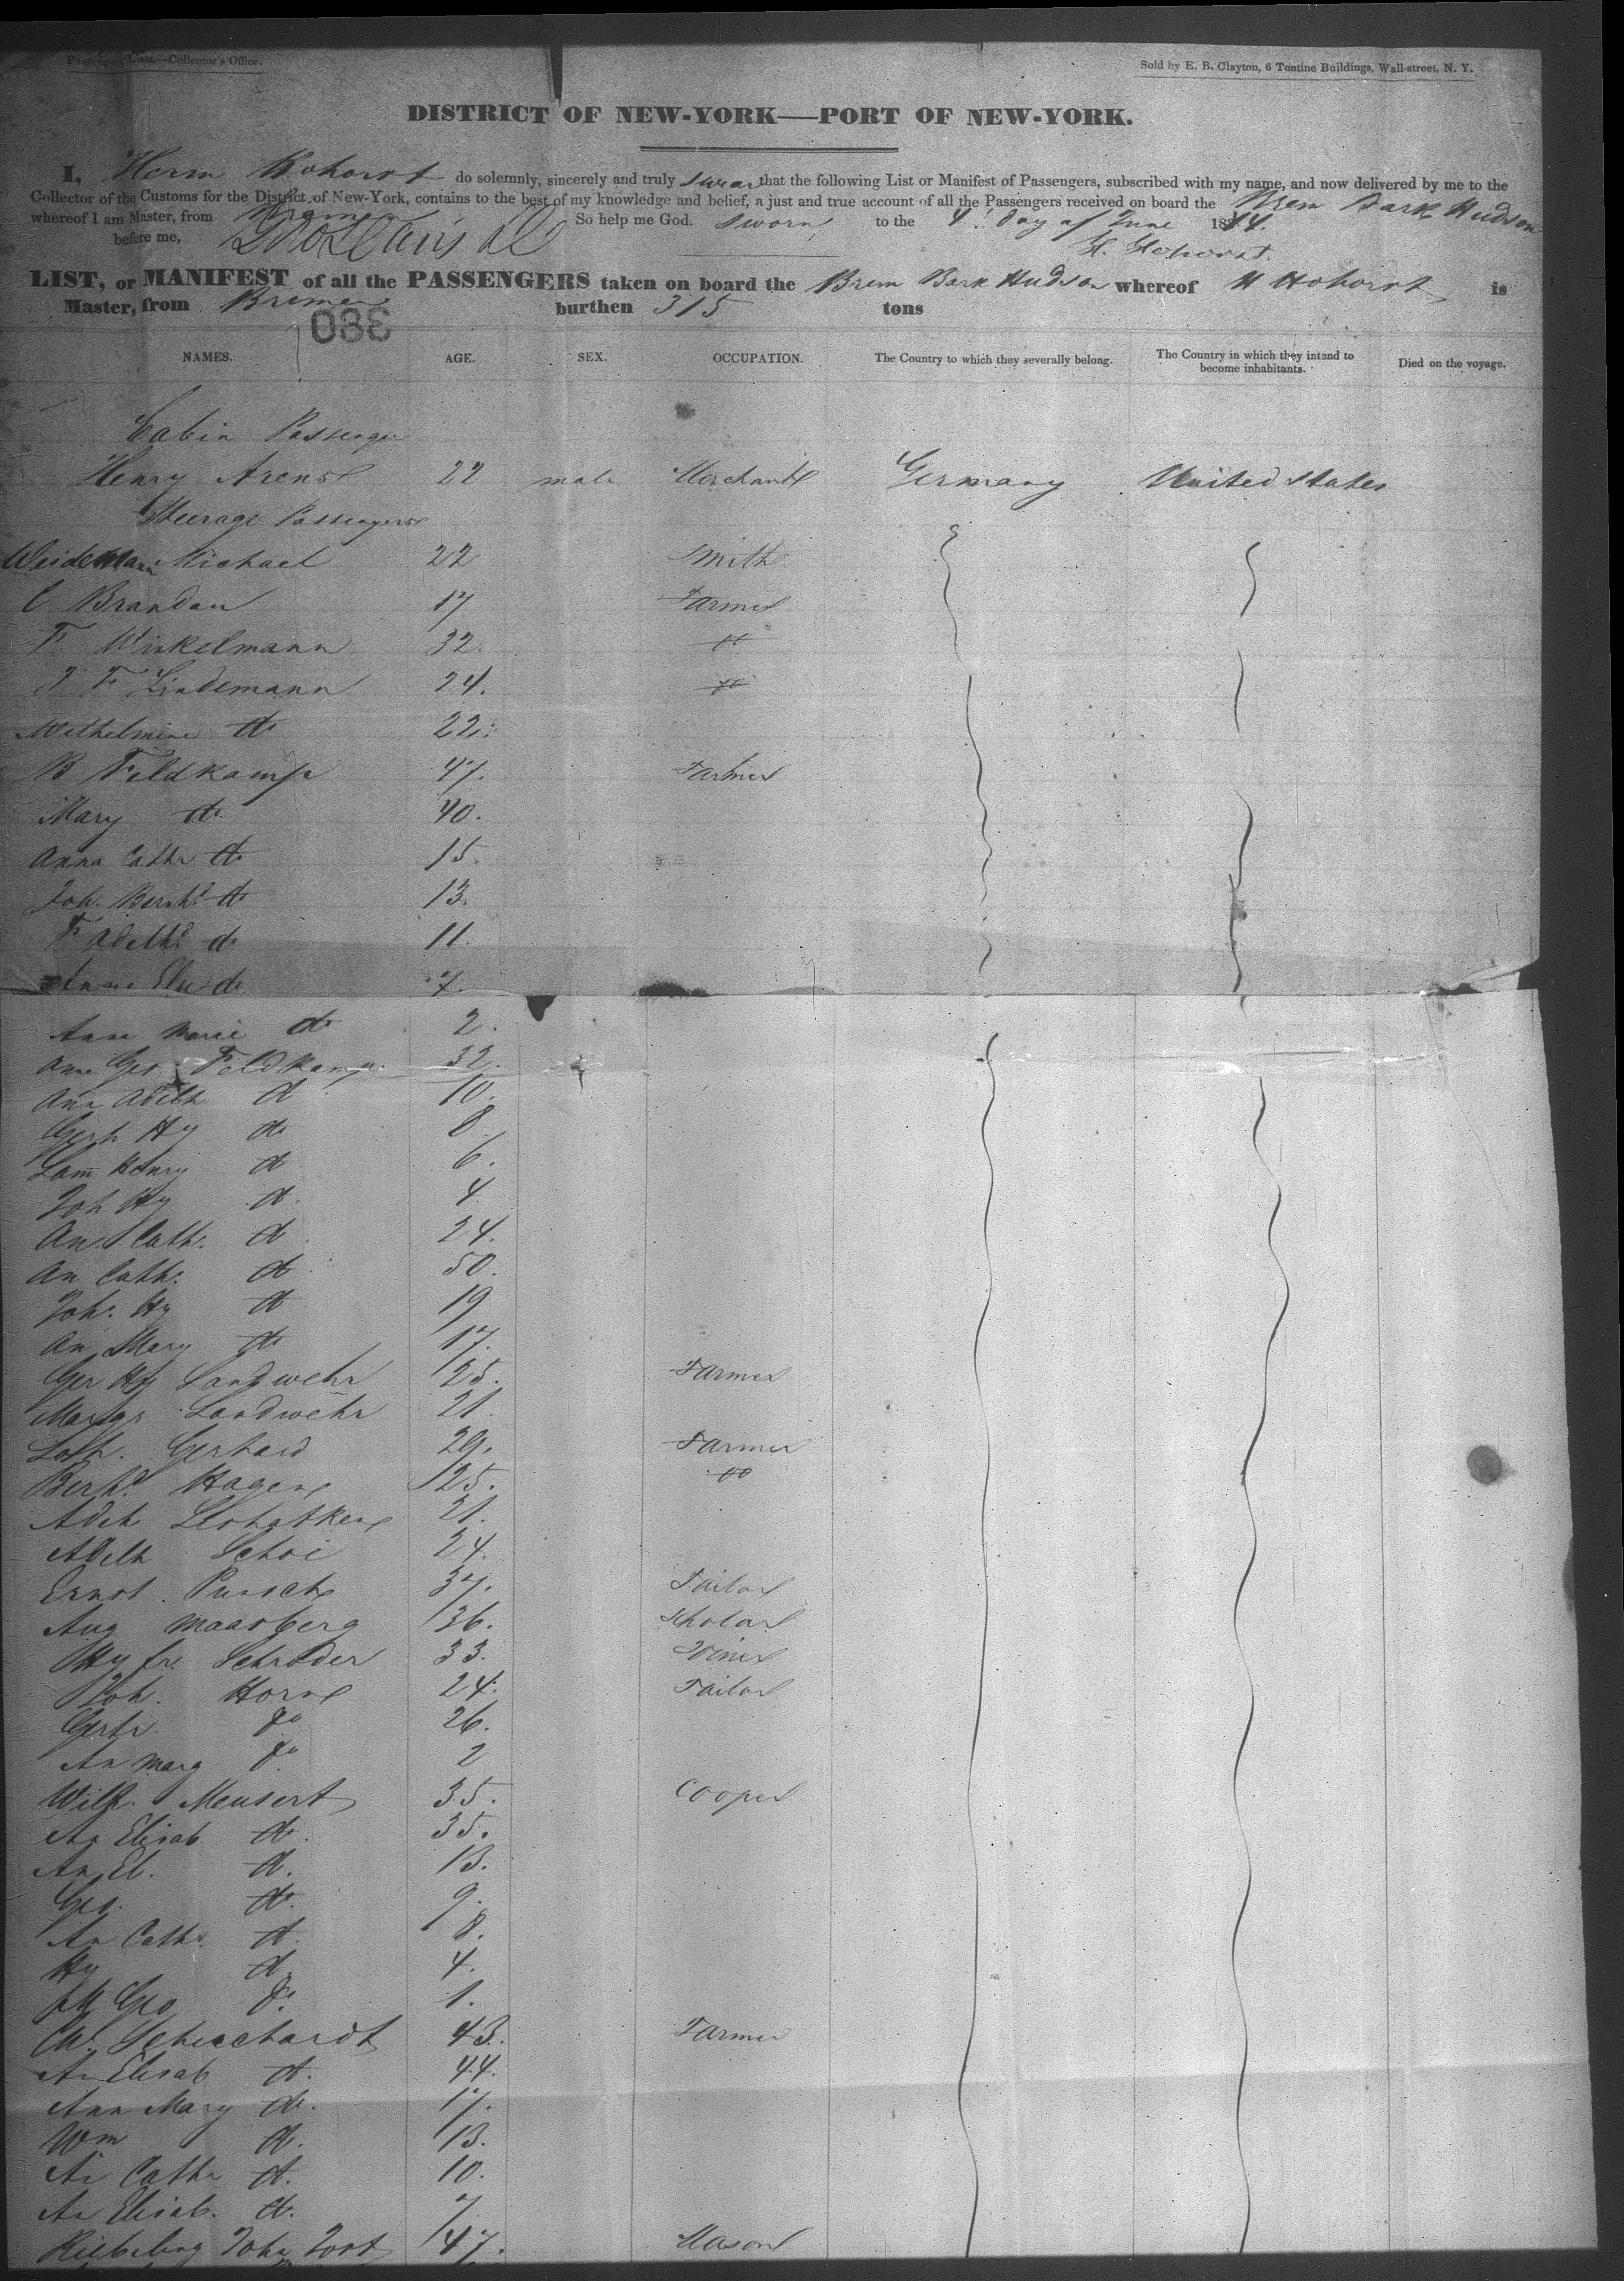 Passenger Lists.—Collector's Office.
Sold by E. B. Clayton, 6 Tontine Buildings, Wall-street, N. Y.
DISTRICT OF NEW-YORK—PORT OF NEW-YORK.
I, Herm Hohorst do solemnly, sincerely and truly swear that the following List or Manifest of Passengers, subscribed with my name, and now delivered by me to the
Collector of the Customs for the District of New-York, contains to the best of my knowledge and belief, a just and true account of all the Passengers received on board the Brem Bark Hudson
whereof I am Master, from Bremen So help me God. Sworn to the 4th Day of June 1844.
before me, H. Hohorst.
LIST, or MANIFEST of all the PASSENGERS taken on board the Brem Bark Hudson whereof H Hohorst is
Master, from Bremen burthen 315 tons
380
NAMES. AGE. SEX. OCCUPATION. The Country to which they severally belong. The Country in which they intend to become inhabitants. Died on the voyage.
Cabin Passenger
Henry Arens 22 male Merchant Germany United States
Steerage Passengers
Weidemann Michael 22 Smith
C Brandau 17 Farmer
F. Winkelmann 32. do
F Lindemann 24. do
Wilhelmine do 22.
B Feldkamp 47. Farmer
Mary do 40.
Anna Cathr do 15.
Joh. Bernh. do 13.
F Adelh. do 11.
Anna Elis do 7.
Anna Marie do 2.
Anna Ger. Feldkamp. 32.
Ann Adelh do 10.
Gerh Hy do 8
Lam Henry do 6.
Joh Hy do 4
An. Cath. do 24.
An Cath. do 50.
Joh. Hy do 19
An Mary do 17.
Ger Hy Landwehr 25. Farmer
Margr Landwehr 21.
Gerhard 29. Farmer
Berhd Hagen 25. do
Adelh 21.
Adelh Schoe 24.
Ernst Pursch 37. Tailor
Aug Maasberg 36. Scholar
Hy fr. Schroder 33.
Joh. Horn 24. Tailor
Gertr. do 26.
An Marg do 2
Wilh. Meusert 35. Cooper
An Elisab do. 35.
An El. do. 13.
Geo. do. 9.
An Cathr. do 8.
Hy do 4.
Geo do. 1.
Schuchardt 43. Farmer
An Elisab do. 44.
Ann Mary do. 17.
Wm do. 13.
An Cathr do. 10.
An Elisab. do. 7
Riebeling John Jost 47. Mason